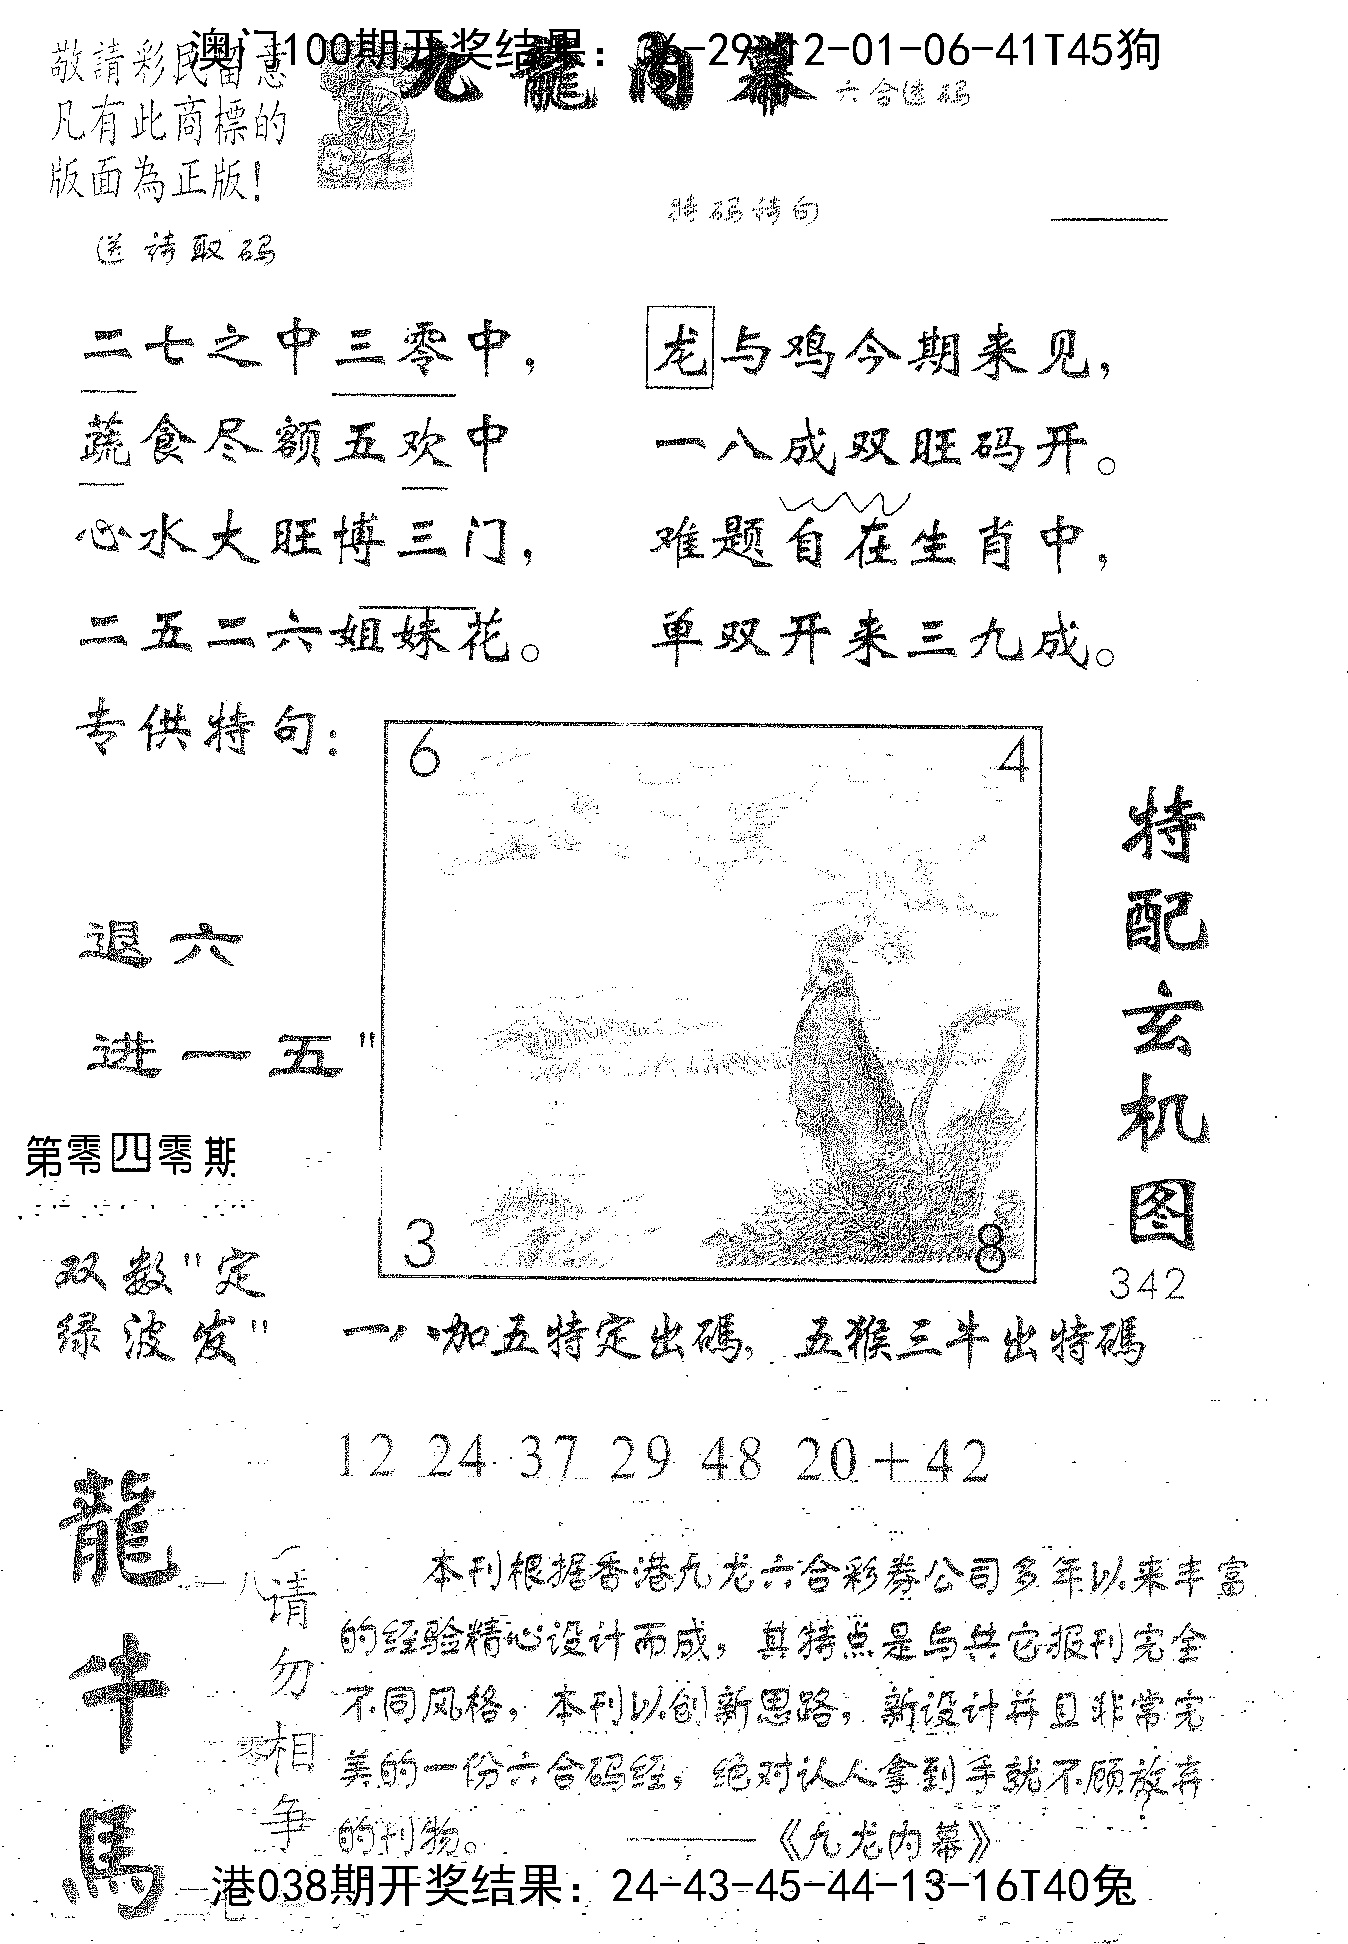 澳门100期开奖结果：36-29-12-01-06-41T45狗
敬請彩民留意
凡有此商標的
版面為正版！
九龍内幕
六合送码
特码诗句
送请取码
二七之中三零中，
蔬食尽额五欢中
心水大旺博三门，
二五二六姐妹花。
龙与鸡今期来见，
一八成双旺码开。
难题自在生肖中，
单双开来三九成。
专供特句：
6 4
3 8
退六
进一五"
第零四零期
双数"定
绿波发"
特配玄机图
342
一八加五特定出碼，五猴三牛出特碼
12 24 37 29 48 20+42
龍牛馬
一八
请勿相争
零
本刊根据香港九龙六合彩券公司多年以来丰富
的经验精心设计而成，其特点是与其它报刊完全
不同风格，本刊以创新思路，新设计并且非常完
美的一份六合码经，绝对认人拿到手就不顾放弃
的刊物。 ———《九龙内幕》
港038期开奖结果：24-43-45-44-13-16T40兔